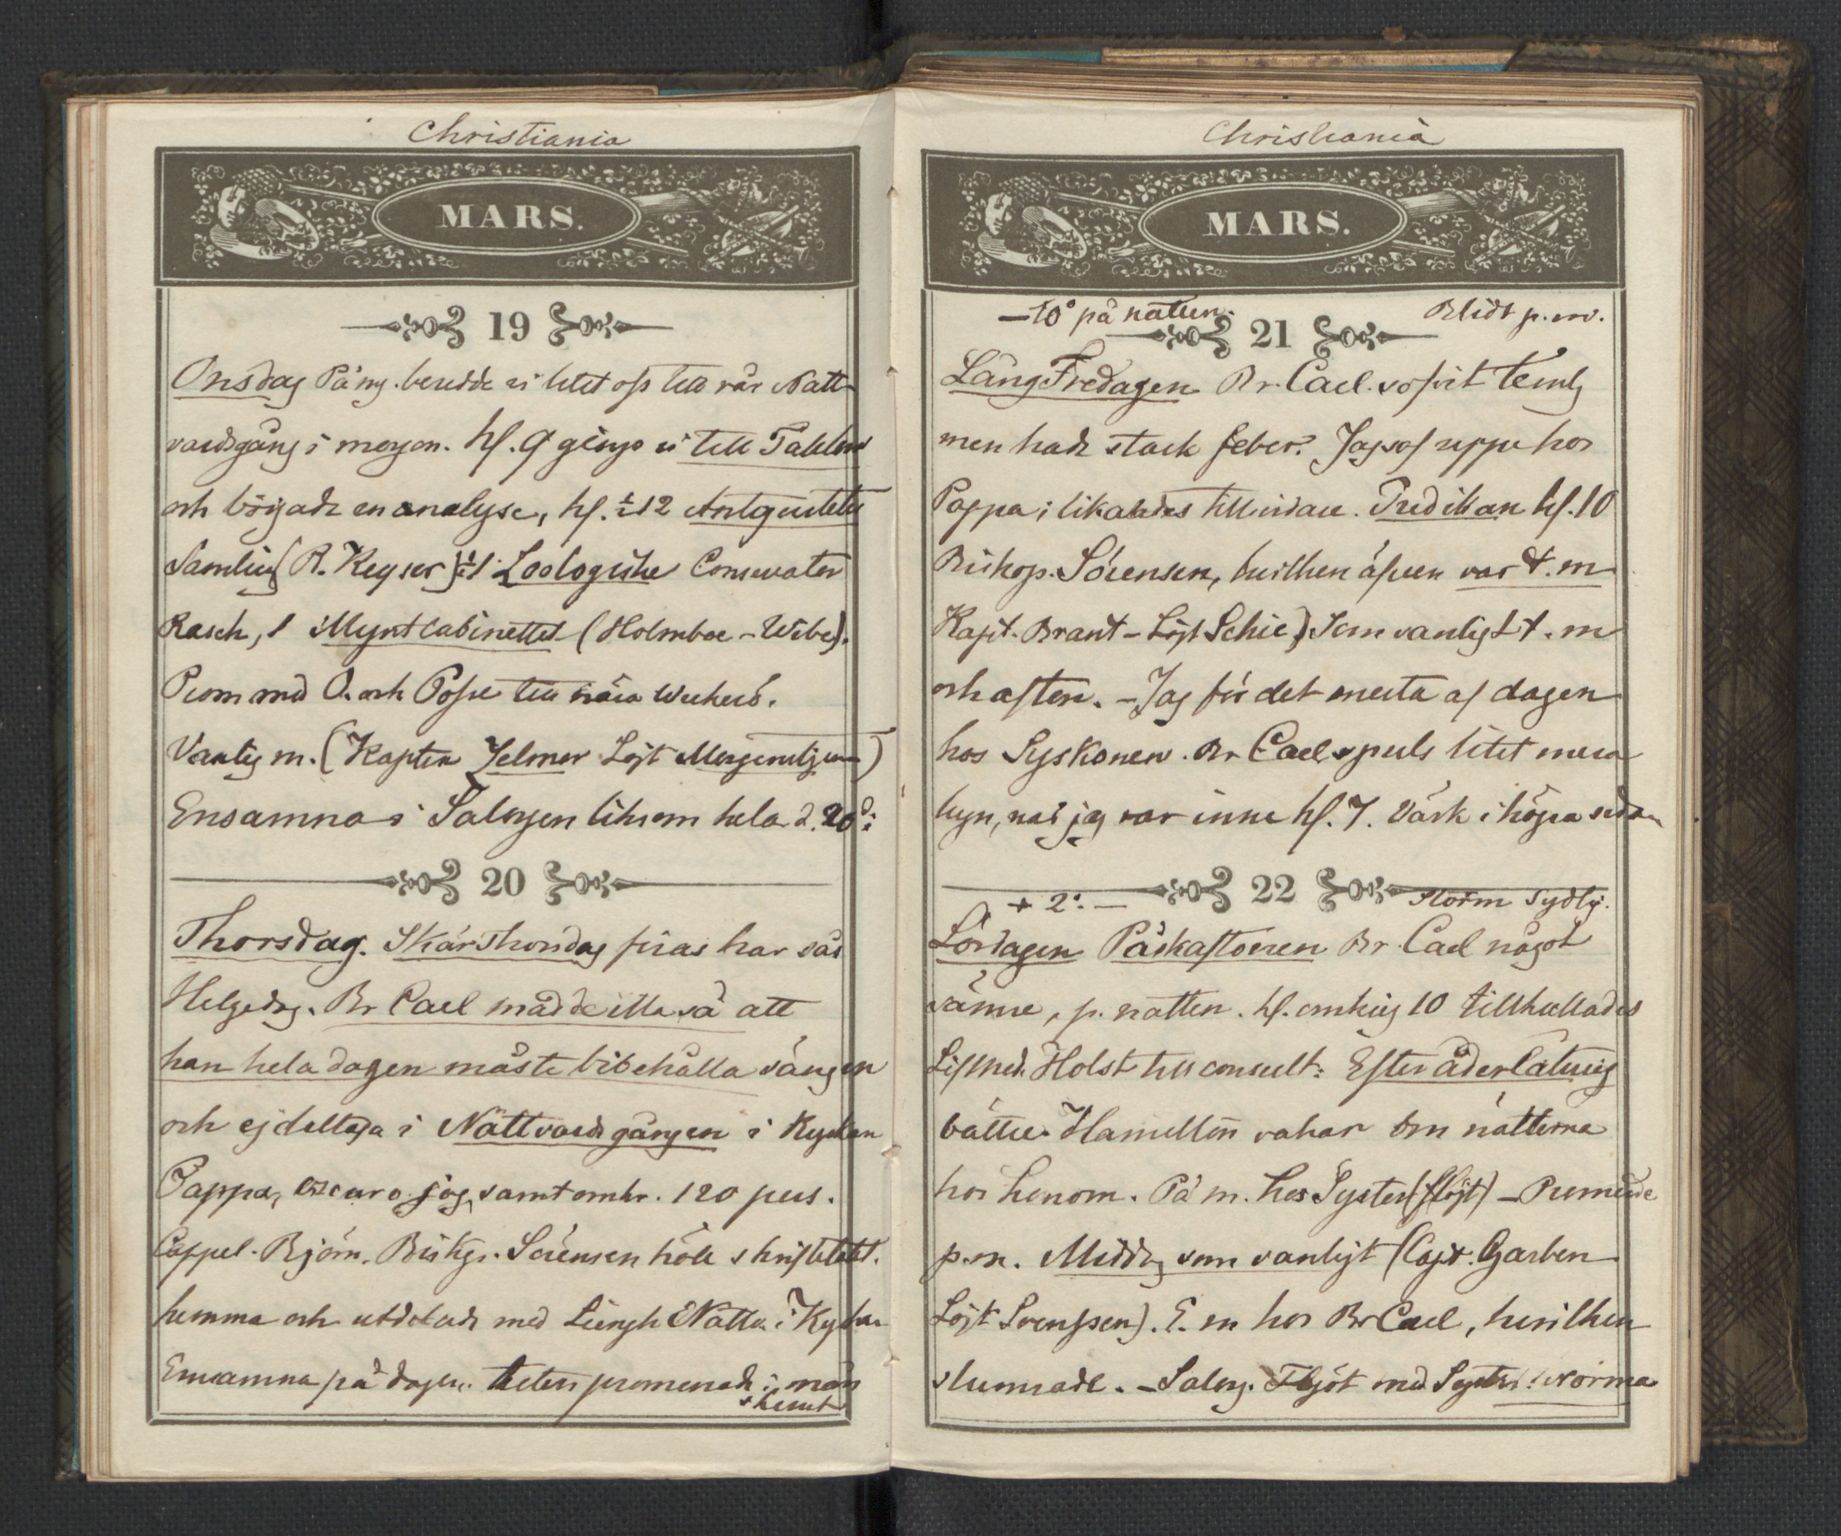 Christiania
MARS.
19
Onsdag På mg. beredde vi litet oss till vår Natt-
vardsgång i morgon. kl. 9 gingo vi till Taklow
och började en analyse, kl. ½ 12 Antiquitets
Samling (R. Keyser) ½ 1 Zoologiska Conservator
Rasch, 1 Myntcabinettet (Holmboe - Wibe).
Prom med O. och Posse till
Vanlig m. (Kapten Zelmer Löjt Morgenstjerne)
Ensamna i Salongen liksom hela d. 20d:
20
Thorsdag. Skärthorsdag firas här sås
Helgedag. Br Carl mådde illa så att
han hela dagen måste bibehålla sängen
och ej deltaga i Nattvardsgången i Kyrkan
Pappa, Oscar o. jag, samt omkr. 120 pers.
Cappel. Björn. Biskop. Sörensen höll skriftetalet.
hemma och utdelade med Lungh Nattv. i Kyrkan
Ensamna på dagen. liten promenade i mån
skenet
Christiania
MARS.
21
-10° på natten. Blidt p. m.
LångFredagen Br. Carl sofvit temlg
men hade stark feber. Jag sof uppe hos
Pappa; likaledes till vidare. Predikan kl. 10
Biskop. Sörensen, hvilken äfven var t. m
Kapt. Brant - Löjt Schie) Som vanligt t. m
och aften. - Jag för det mesta af dagen
hos Syskonen. Br Carl spells litet mera
lugn, när jag var inne kl. 7. Värk i högra sidan
22
+ 2°. - Storm Sydlig.
Lördagen Påskaftonen Br Carl något
sämre, p. natten. kl. omkring 10 tillkallades
Lifmed. Holst till consult: Efter åderlåtning
bättre. Hamilton vakar om nätterna
hos honom. På m. hos Syster (flöjt) - Promenade
p. m. Middag som vanligt (Capt. Garben
Löjt Svenssen). E. m hos Br Carl, hvilken
slumrade. - Salong. Flöjt med Syster: Norma